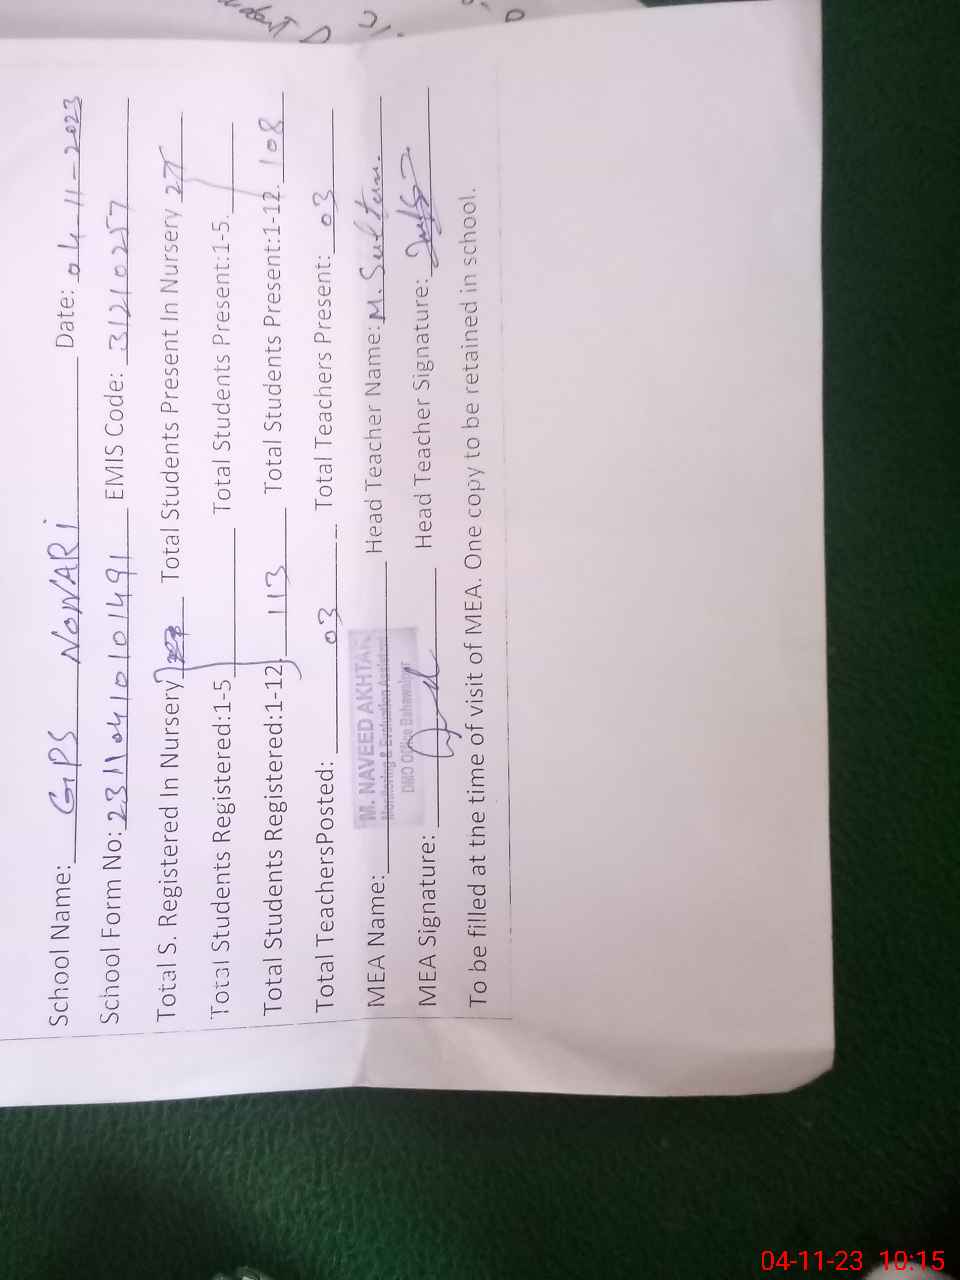 School Name: GPS NOWARi Date: 04-11-2023
School Form No: 23110410101491 EMIS Code: 31210257
Total S. Registered In Nursery Total Students Present In Nursery
Total Students Registered:1-5 Total Students Present:1-5.
Total Students Registered:1-12. 113 Total Students Present:1-12. 108
Total TeachersPosted: 03 Total Teachers Present: 03
MEA Name: M. NAVEED AKHTAR Head Teacher Name: M. Sultan.
Monitoring & Evaluation Assistant
DMO Office Bahawalpur
MEA Signature: Head Teacher Signature:
To be filled at the time of visit of MEA. One copy to be retained in school.
04-11-23 10:15